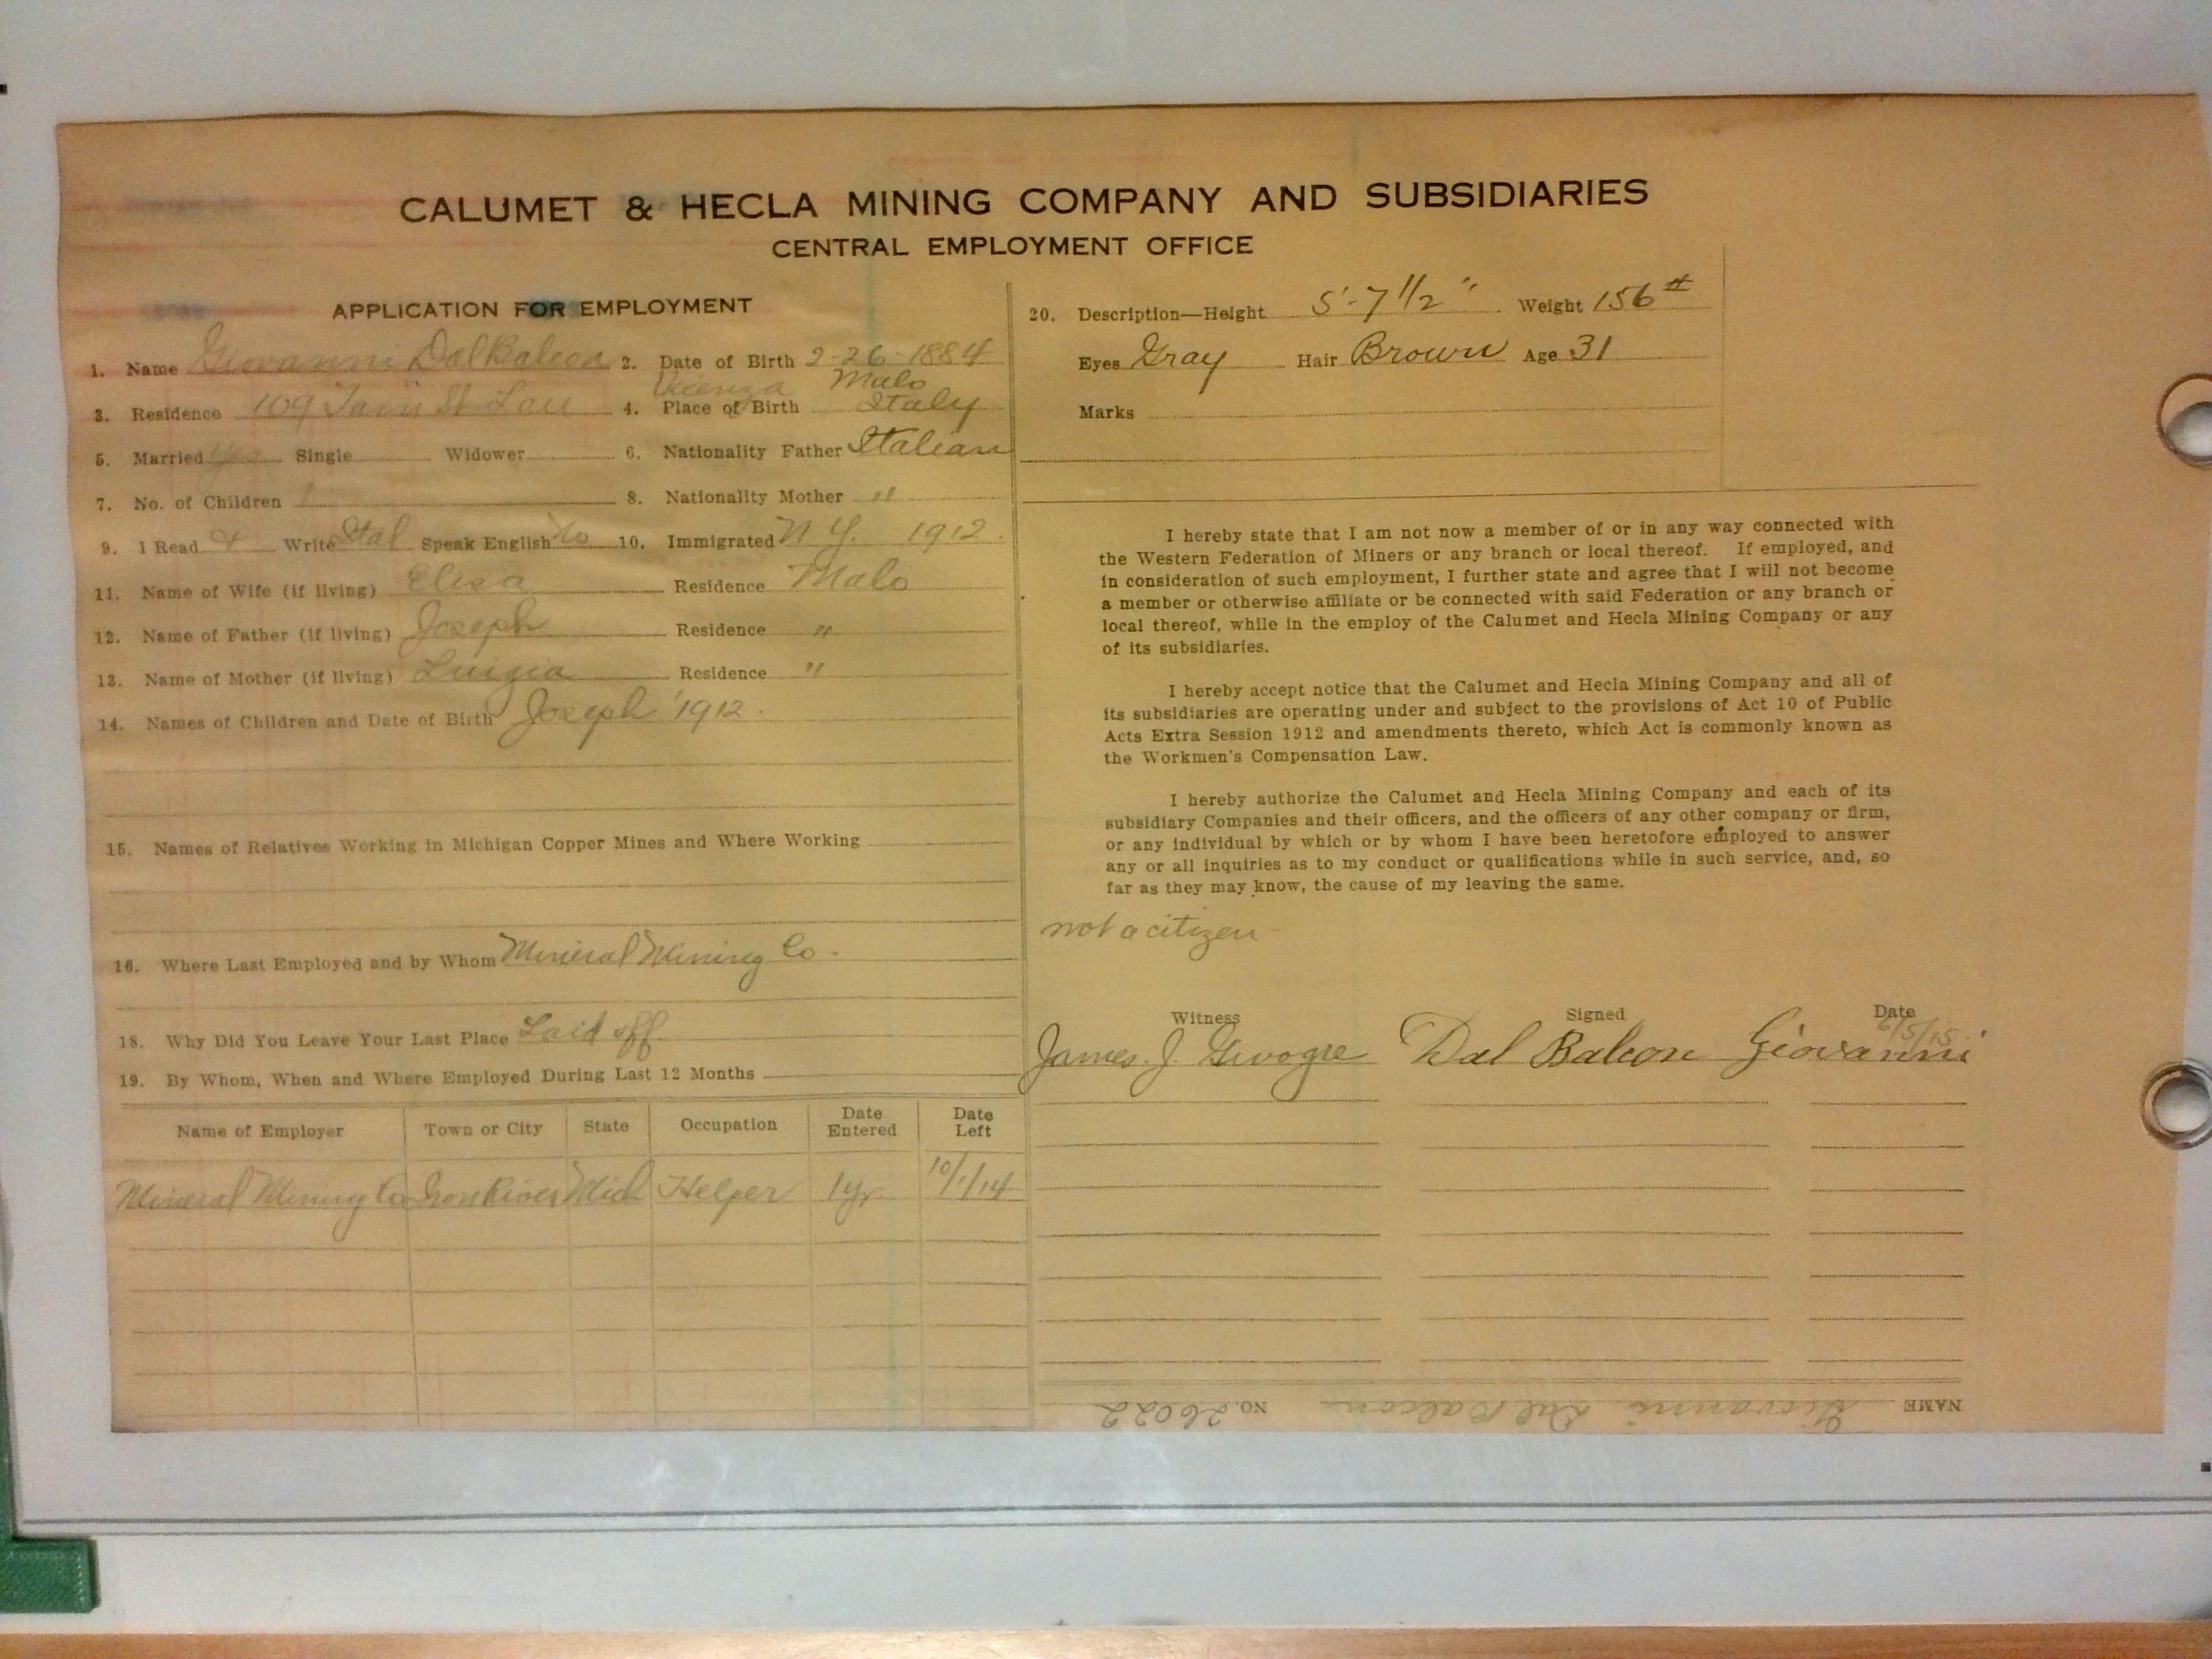 CALUMET & HECLA MINING COMPANY AND SUBSIDIARIES
CENTRAL EMPLOYMENT OFFICE
APPLICATION FOR EMPLOYMENT
1. Name Giovanni Dal Balcon 2. Date of Birth 2-26-1884
Vicenza Malo
3. Residence 109 St Lau 4. Place of Birth Italy
5. Married Yes Single Widower 6. Nationality Father Italian
7. No. of Children 1 8. Nationality Mother "
9. I Read & Write Ital Speak English No 10. Immigrated N.Y. 1912.
11. Name of Wife (if living) Elisa Residence Malo
12. Name of Father (if living) Joseph Residence "
13. Name of Mother (if living) Luigia Residence "
14. Names of Children and Date of Birth Joseph 1912.
15. Names of Relatives Working in Michigan Copper Mines and Where Working
16. Where Last Employed and by Whom Mineral Mining Co.
18. Why Did You Leave Your Last Place Laid off
19. By Whom, When and Where Employed During Last 12 Months
Name of Employer Town or City State Occupation Date Entered Date Left
Mineral Mining Co Iron River Mich Helper 1 yr 10/1/14
20. Description—Height 5'-7 1/2" Weight 156 #
Eyes Gray Hair Brown Age 31
Marks
I hereby state that I am not now a member of or in any way connected with
the Western Federation of Miners or any branch or local thereof. If employed, and
in consideration of such employment, I further state and agree that I will not become
a member or otherwise affiliate or be connected with said Federation or any branch or
local thereof, while in the employ of the Calumet and Hecla Mining Company or any
of its subsidiaries.
I hereby accept notice that the Calumet and Hecla Mining Company and all of
its subsidiaries are operating under and subject to the provisions of Act 10 of Public
Acts Extra Session 1912 and amendments thereto, which Act is commonly known as
the Workmen's Compensation Law.
I hereby authorize the Calumet and Hecla Mining Company and each of its
subsidiary Companies and their officers, and the officers of any other company or firm,
or any individual by which or by whom I have been heretofore employed to answer
any or all inquiries as to my conduct or qualifications while in such service, and, so
far as they may know, the cause of my leaving the same.
not a citizen
Witness Signed Date
6/5/15
James J. Dal Balcon Giovanni
NAME Giovanni Dal Balcon NO. 26022